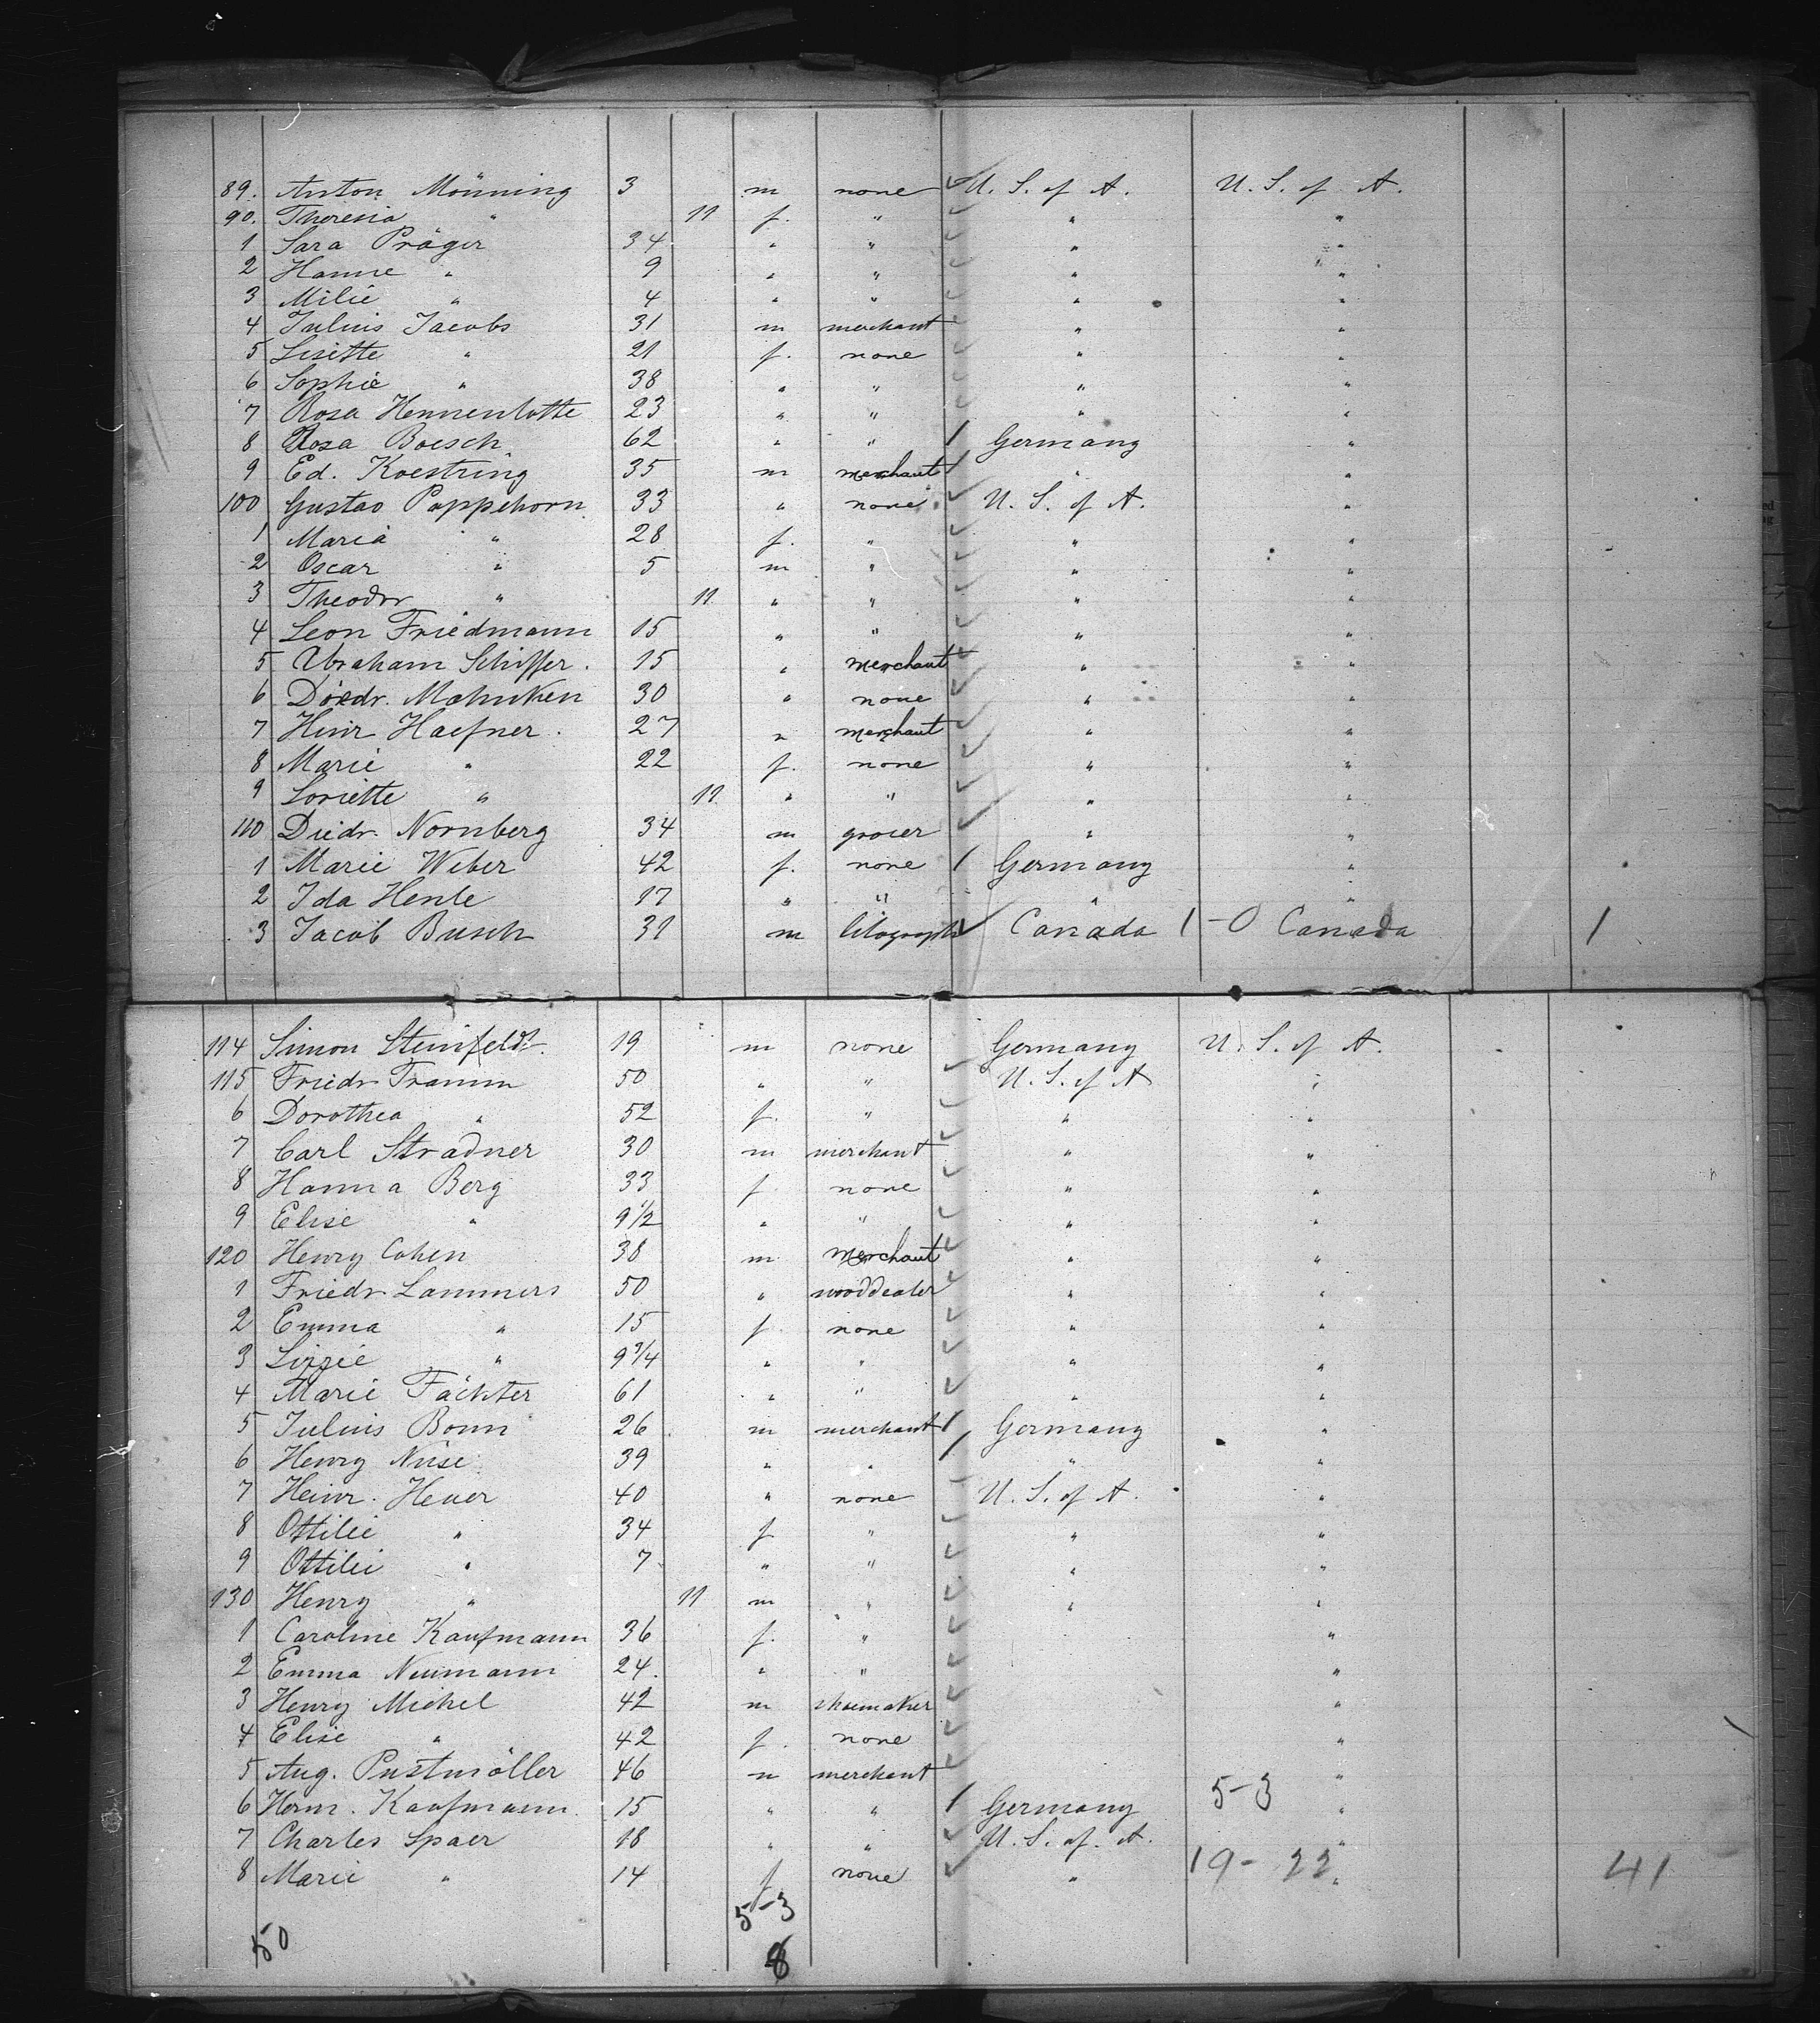 89. Anton Mönning 3 m none U. S. of A. U. S. of A.
90. Theresia " 11 f. " " "
1 Sara Präger 34 " " " "
2 Hanne " 9 " " " "
3 Milie " 4 " " " "
4 Julius Jacobs 31 m merchant " "
5 Lisette " 21 f. none " "
6 Sophie " 38 " " " "
7 Rosa Hennenlotte 23 " " " "
8 Rosa Boesch 62 " " 1 Germany "
9 Ed. Koestring 35 m merchant 1 " "
100 Gustav Poppehorn 33 " none U. S. of A. "
1 Maria " 28 f. " " "
2 Oscar " 5 m " " "
3 Theodor " 11 " " " "
4 Leon Friedmann 15 " " " "
5 Abraham Schiffer. 15 " merchant " "
6 Diedr. Mahnken 30 " none " "
7 Heinr Haefner. 27 " merchant " "
8 Marie " 22 f. none " "
9 Loriette " 11 " " " "
110 Diedr. Nornberg 34 m grocer " "
1 Marie Weber 42 f. none 1 Germany "
2 Ida Henle 17 " " " "
3 Jacob Busch 31 m litograph Canada 1 - 0 Canada 1
114 Simon Steinfeldt. 19 m none Germany U. S. of A.
115 Friedr Tramm 50 " " U. S. of A "
6 Dorothea " 52 f. " " "
7 Carl Stradner 30 m merchant " "
8 Hanna Berg 33 f none " "
9 Elise " 9 1/2 " " " "
120 Henry Cohen 38 m merchant " "
1 Friedr Lammers 50 " wooddealer " "
2 Emma " 15 f. none " "
3 Lizzie " 9 3/4 " " " "
4 Marie Fächter 61 " " " "
5 Julius Bonn 26 m merchant 1 Germany "
6 Henry Nüse 39 " " 1 " "
7 Heinr. Heuer 40 " none U. S. of A. "
8 Ottilie " 34 f " " "
9 Ottilie " 7 " " " "
130 Henry " 11 m " " "
1 Caroline Kaufmann 36 f. " "
2 Emma Neumann 24. " " "
3 Henry Michel 42 m shoemaker "
4 Elise " 42 f. none "
5 Aug. Pustmöller 46 m merchant "
6 Herm. Kaufmann 15 " " 1 Germany 5-3 "
7 Charles Spaer 18 " " U. S. of. A. "
8 Marie " 14 f none " 19 - 22 " 41
5-3
50
8